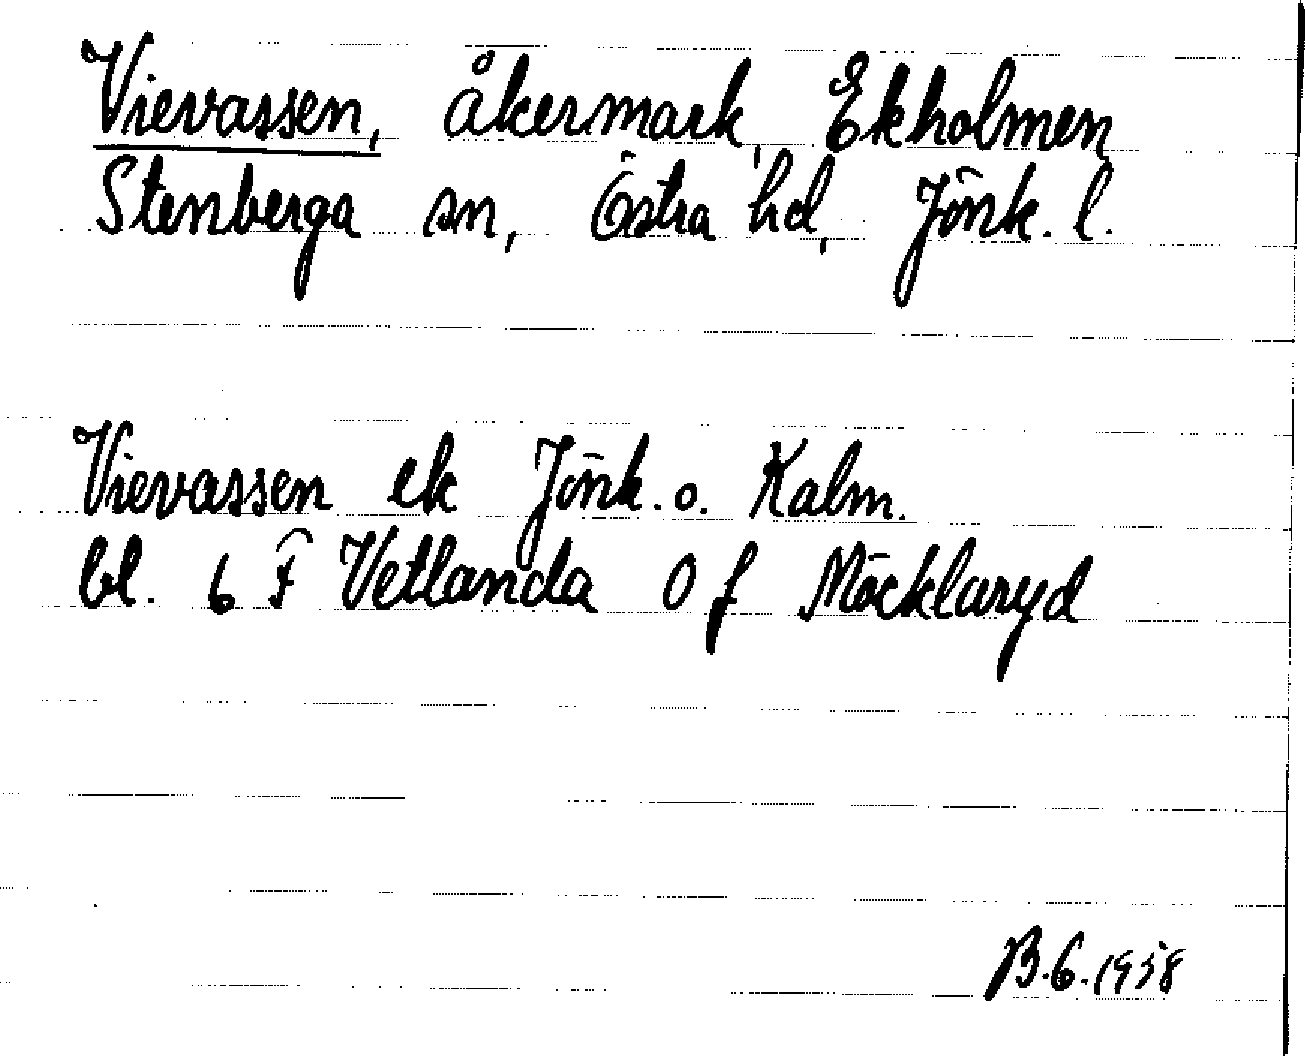 Vievassen, åkermark, Ekholmen
Stenberga sn, Östra hd, Jönk. l.
Vievassen ek Jönk. o. Kalm.
bl. 6 F Vetlanda 0 f Möcklaryd
B.G. 1958